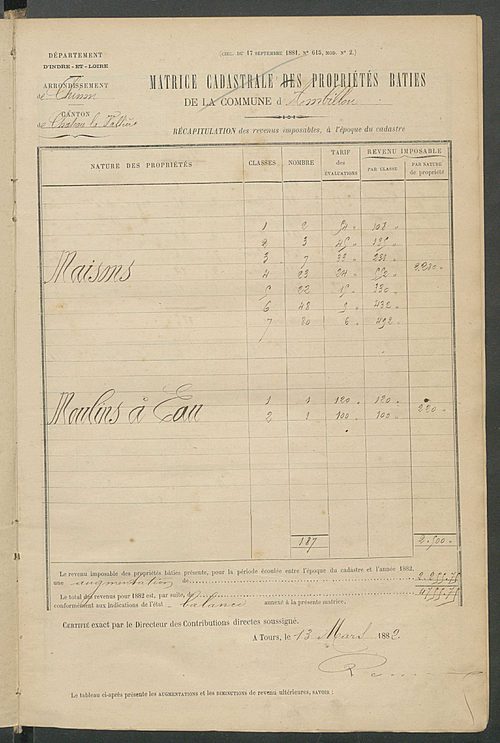 DÉPARTEMENT
D'INDRE-ET-LOIRE
ARRONDISSEMENT
de Chinon
CANTON
de Château la Vallière
(CIRC. DU 17 SEPTEMBRE 1881, N° 615, MOD. N° 2.)
MATRICE CADASTRALE DES PROPRIÉTÉS BATIES
DE LA COMMUNE d'Ambillou
RÉCAPITULATION des revenus imposables, à l'époque du cadastre
NATURE DES PROPRIÉTÉS CLASSES NOMBRE TARIF des ÉVALUATIONS REVENU IMPOSABLE
PAR CLASSE PAR NATURE de propriété
1 2 54 108
2 3 45 135
3 7 33 231
Maisons 4 23 24 552 2.280
5 22 15 330
6 48 9 432
7 80 6 492
Moulins à Eau 1 1 120 120 220
2 1 100 100
187 2.500
Le revenu imposable des propriétés bâties présente, pour la période écoulée entre l'époque du cadastre et l'année 1882,
une augmentation de 2.255.75
Le total des revenus pour 1882 est, par suite, de 4755.75
conformément aux indications de l'état balance annexé à la présente matrice.
CERTIFIÉ exact par le Directeur des Contributions directes soussigné.
A Tours, le 13 Mars 1882
Le tableau ci-après présente les AUGMENTATIONS et les DIMINUTIONS de revenu ultérieures, SAVOIR :